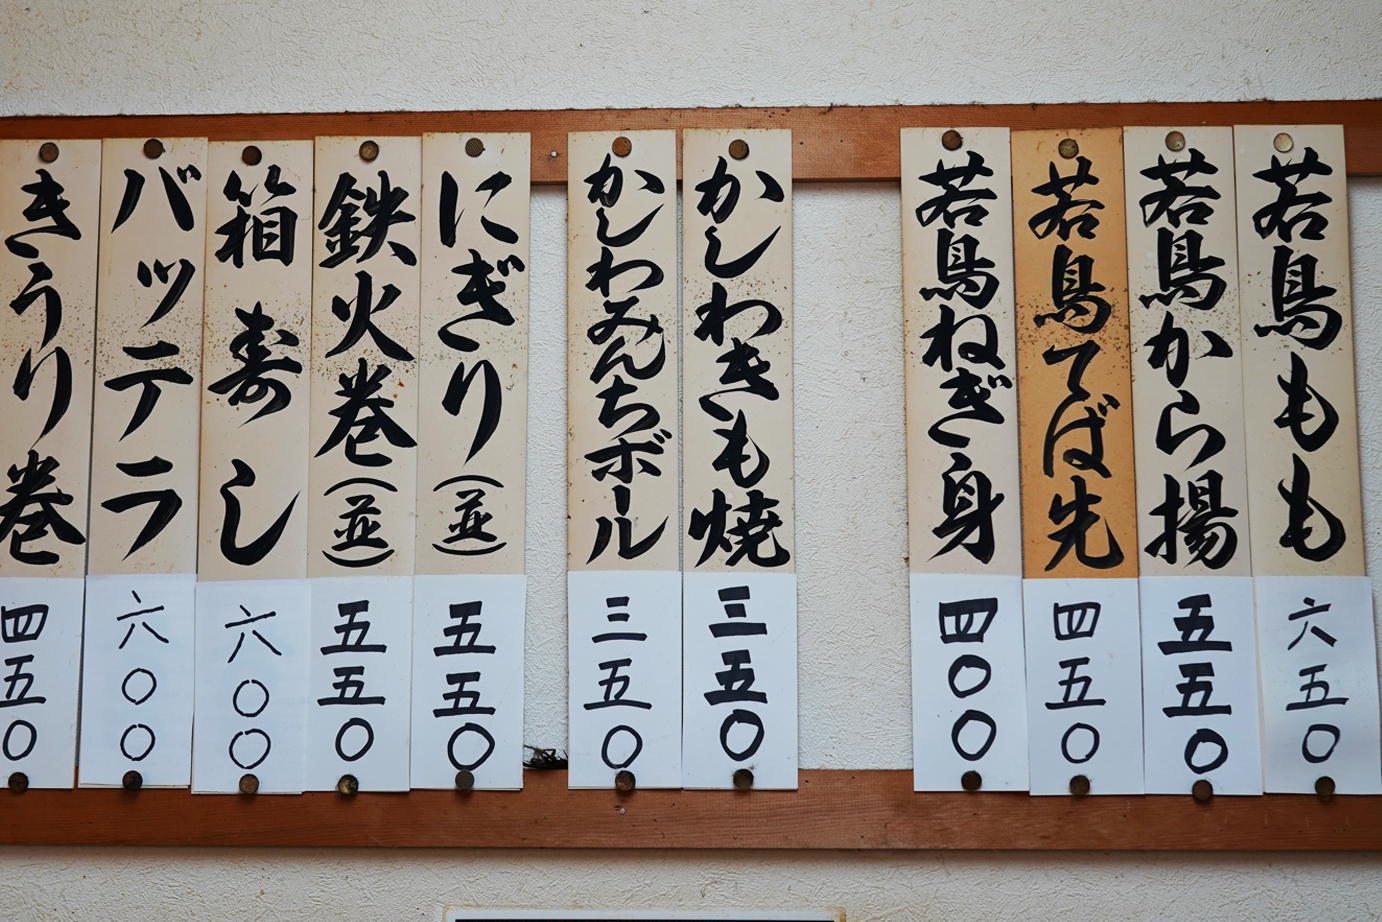 若鳥もも
六五〇
若鳥から揚
五五〇
若鳥てば先
四五〇
若鳥ねぎ身
四〇〇
かしわきも焼
三五〇
かしわみんちボール
三五〇
にぎり(並)
五五〇
鉄火巻(並)
五五〇
箱寿し
六〇〇
バッテラ
六〇〇
きうり巻
四五〇